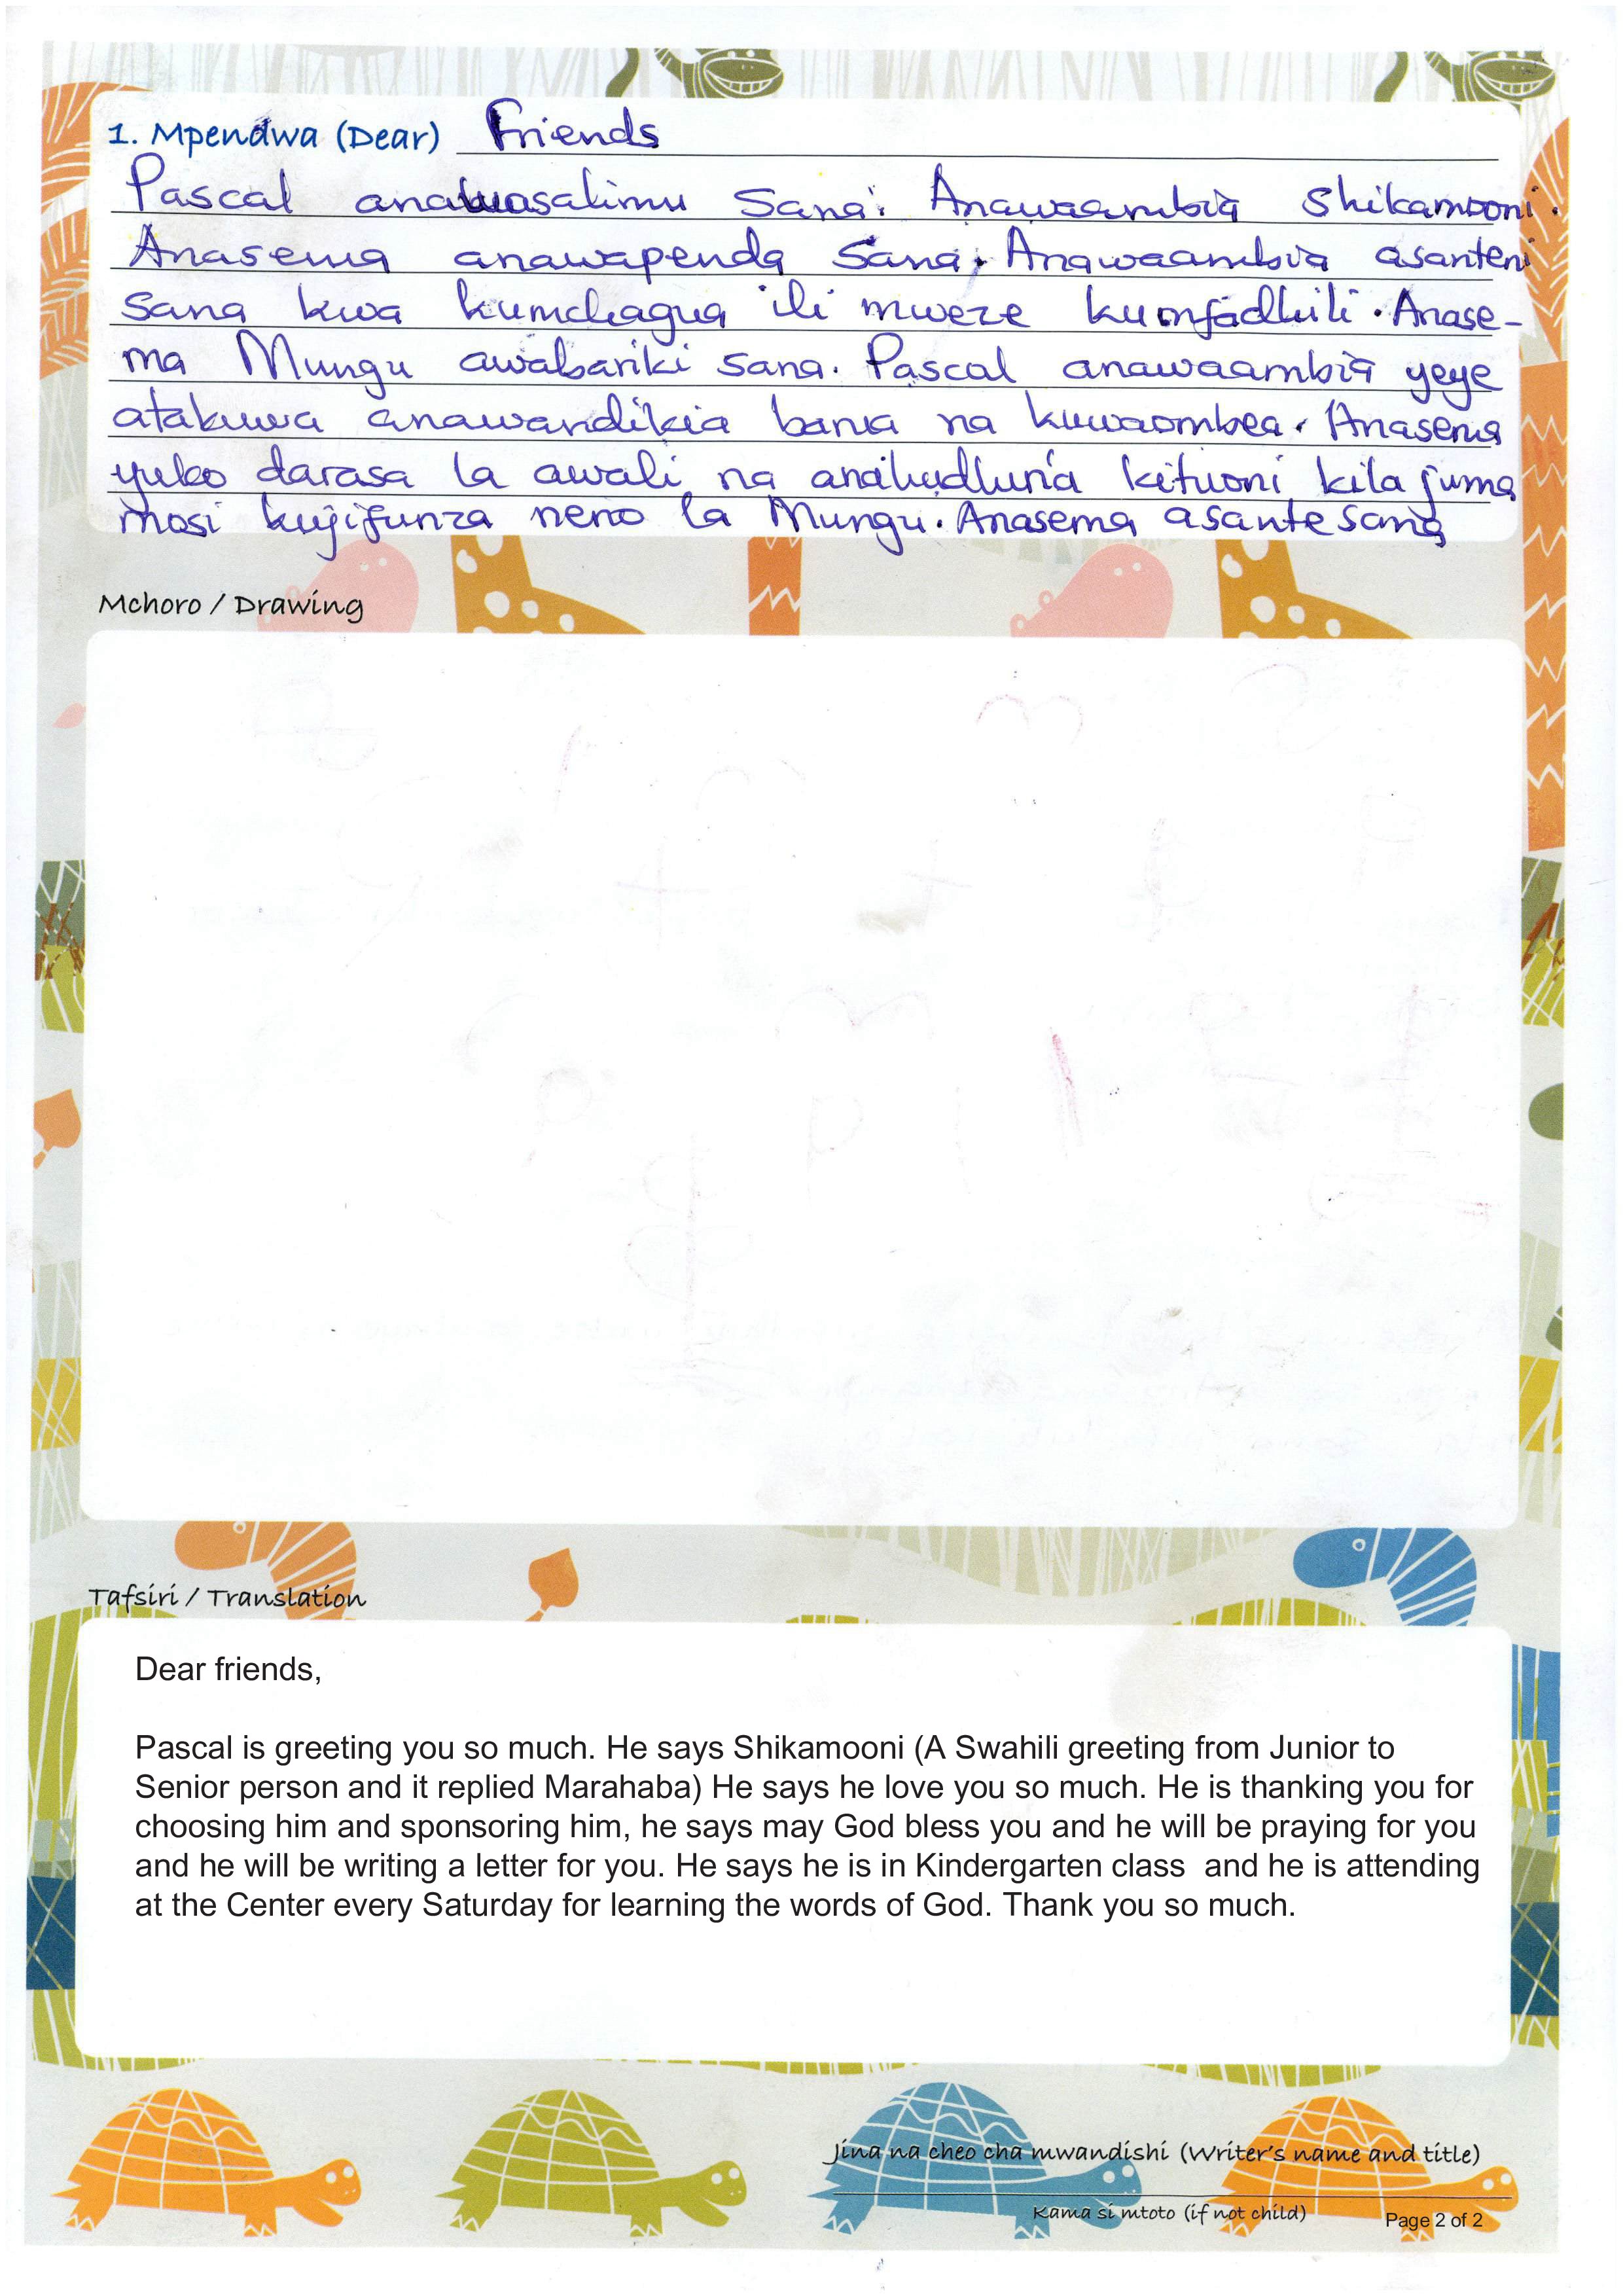 1. Mpendwa (Dear) Friends
Pascal anawasalimu sana. Anawaambia shikamooni.
Anasema anawapenda sana. Anawaambia asanteni
sana kwa kumchagua ili mweze kumfadhili. Anase-
ma Mungu awabariki sana. Pascal anawaambia yeye
atakuwa anawandikia barua na kuwaombea. Anasema
yuko darasa la awali na anahudhuria kituoni kila juma
mosi kujifunza neno la Mungu. Anasema asante sana
Mchoro / Drawing
Tafsiri / Translation
Dear friends,
Pascal is greeting you so much. He says Shikamooni (A Swahili greeting from Junior to
Senior person and it replied Marahaba) He says he love you so much. He is thanking you for
choosing him and sponsoring him, he says may God bless you and he will be praying for you
and he will be writing a letter for you. He says he is in Kindergarten class  and he is attending
at the Center every Saturday for learning the words of God. Thank you so much.
Jina na cheo cha mwandishi (Writer's name and title)
Kama si mtoto (if not child)
Page 2 of 2